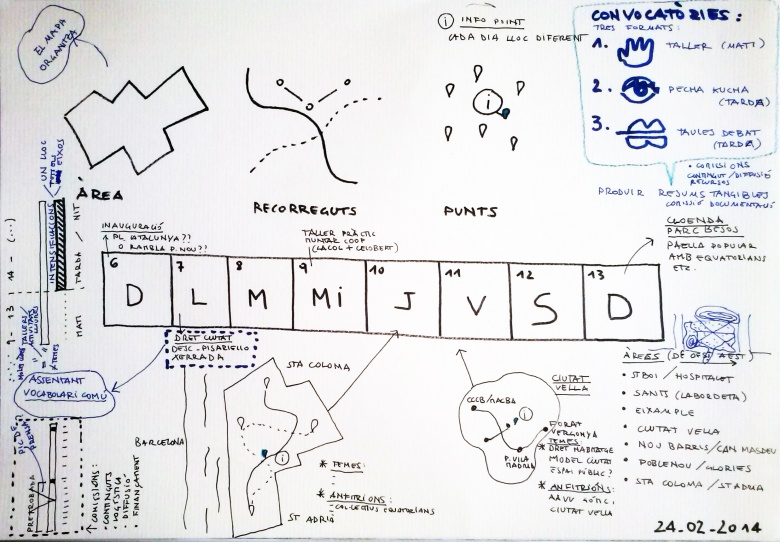 EL MAPA
ORGANITZA
i INFO POINT
CADA DIA LLOC DIFERENT
CONVOCATÒRIES:
TRES FORMATS:
1. TALLER (MATI)
2. PECHA KUCHA
(TARDA)
3. TAULES DEBAT
(TARDA)
• COMISSIONS
CONTINGUT/DIFUSIÓ
RECURSOS
PRODUIR RESUMS TANGIBLES
COMISSIÓ DOCUMENTACIÓ
ÀREA
RECORREGUTS
PUNTS
i
UN LLOC
EIXOS
INTENSIFICACIONS
TARDA / NIT
MATI
9 - 13
14 - (...)
TALLERS/
INAUGURACIÓ
PL. CATALUNYA??
O RAMBLA P. NOU??
TALLER PRÀCTIC
MUNTAR COOP
(LACOL + CELOBERT)
CLOENDA
PARC BESÒS
PAELLA POPULAR
AMB EQUATORIANS
ETC.
6 D
7 L
8 M
9 Mi
10 J
11 V
12 S
13 D
DRET CIUTAT
DESC - PISARELLO
XERRADA
ASSENTANT
VOCABULARI COMÚ
PIC DE
PREPARIBADA
↑ COMISSIONS:
• CONTINGUTS
• LOGÍSTICA
• DIFUSIÓ
• FINANÇAMENT
BARCELONA
STA COLOMA
i
ST ADRIÀ
* TEMES:
* ANFITRIONS:
COL·LECTIUS EQUATORIANS
CIUTAT
VELLA
CCCB/MACBA
i
FORAT
VERGONYA
P. VILA
MADRID
TEMES:
* DRET HABITATGE
MODEL CIUTAT
ESPAI PÚBLIC?
* ANFITRIONS:
AAVV GÒTIC,
CIUTAT VELLA
ÀREES (D'OEST A EST)
• ST BOI / HOSPITALET
• SANTS (LABORDETA)
• EIXAMPLE
• CIUTAT VELLA
• NOU BARRIS / CAN MASDEU
• POBLENOU / GLÒRIES
• STA COLOMA / ST ADRIA
24-02-2014